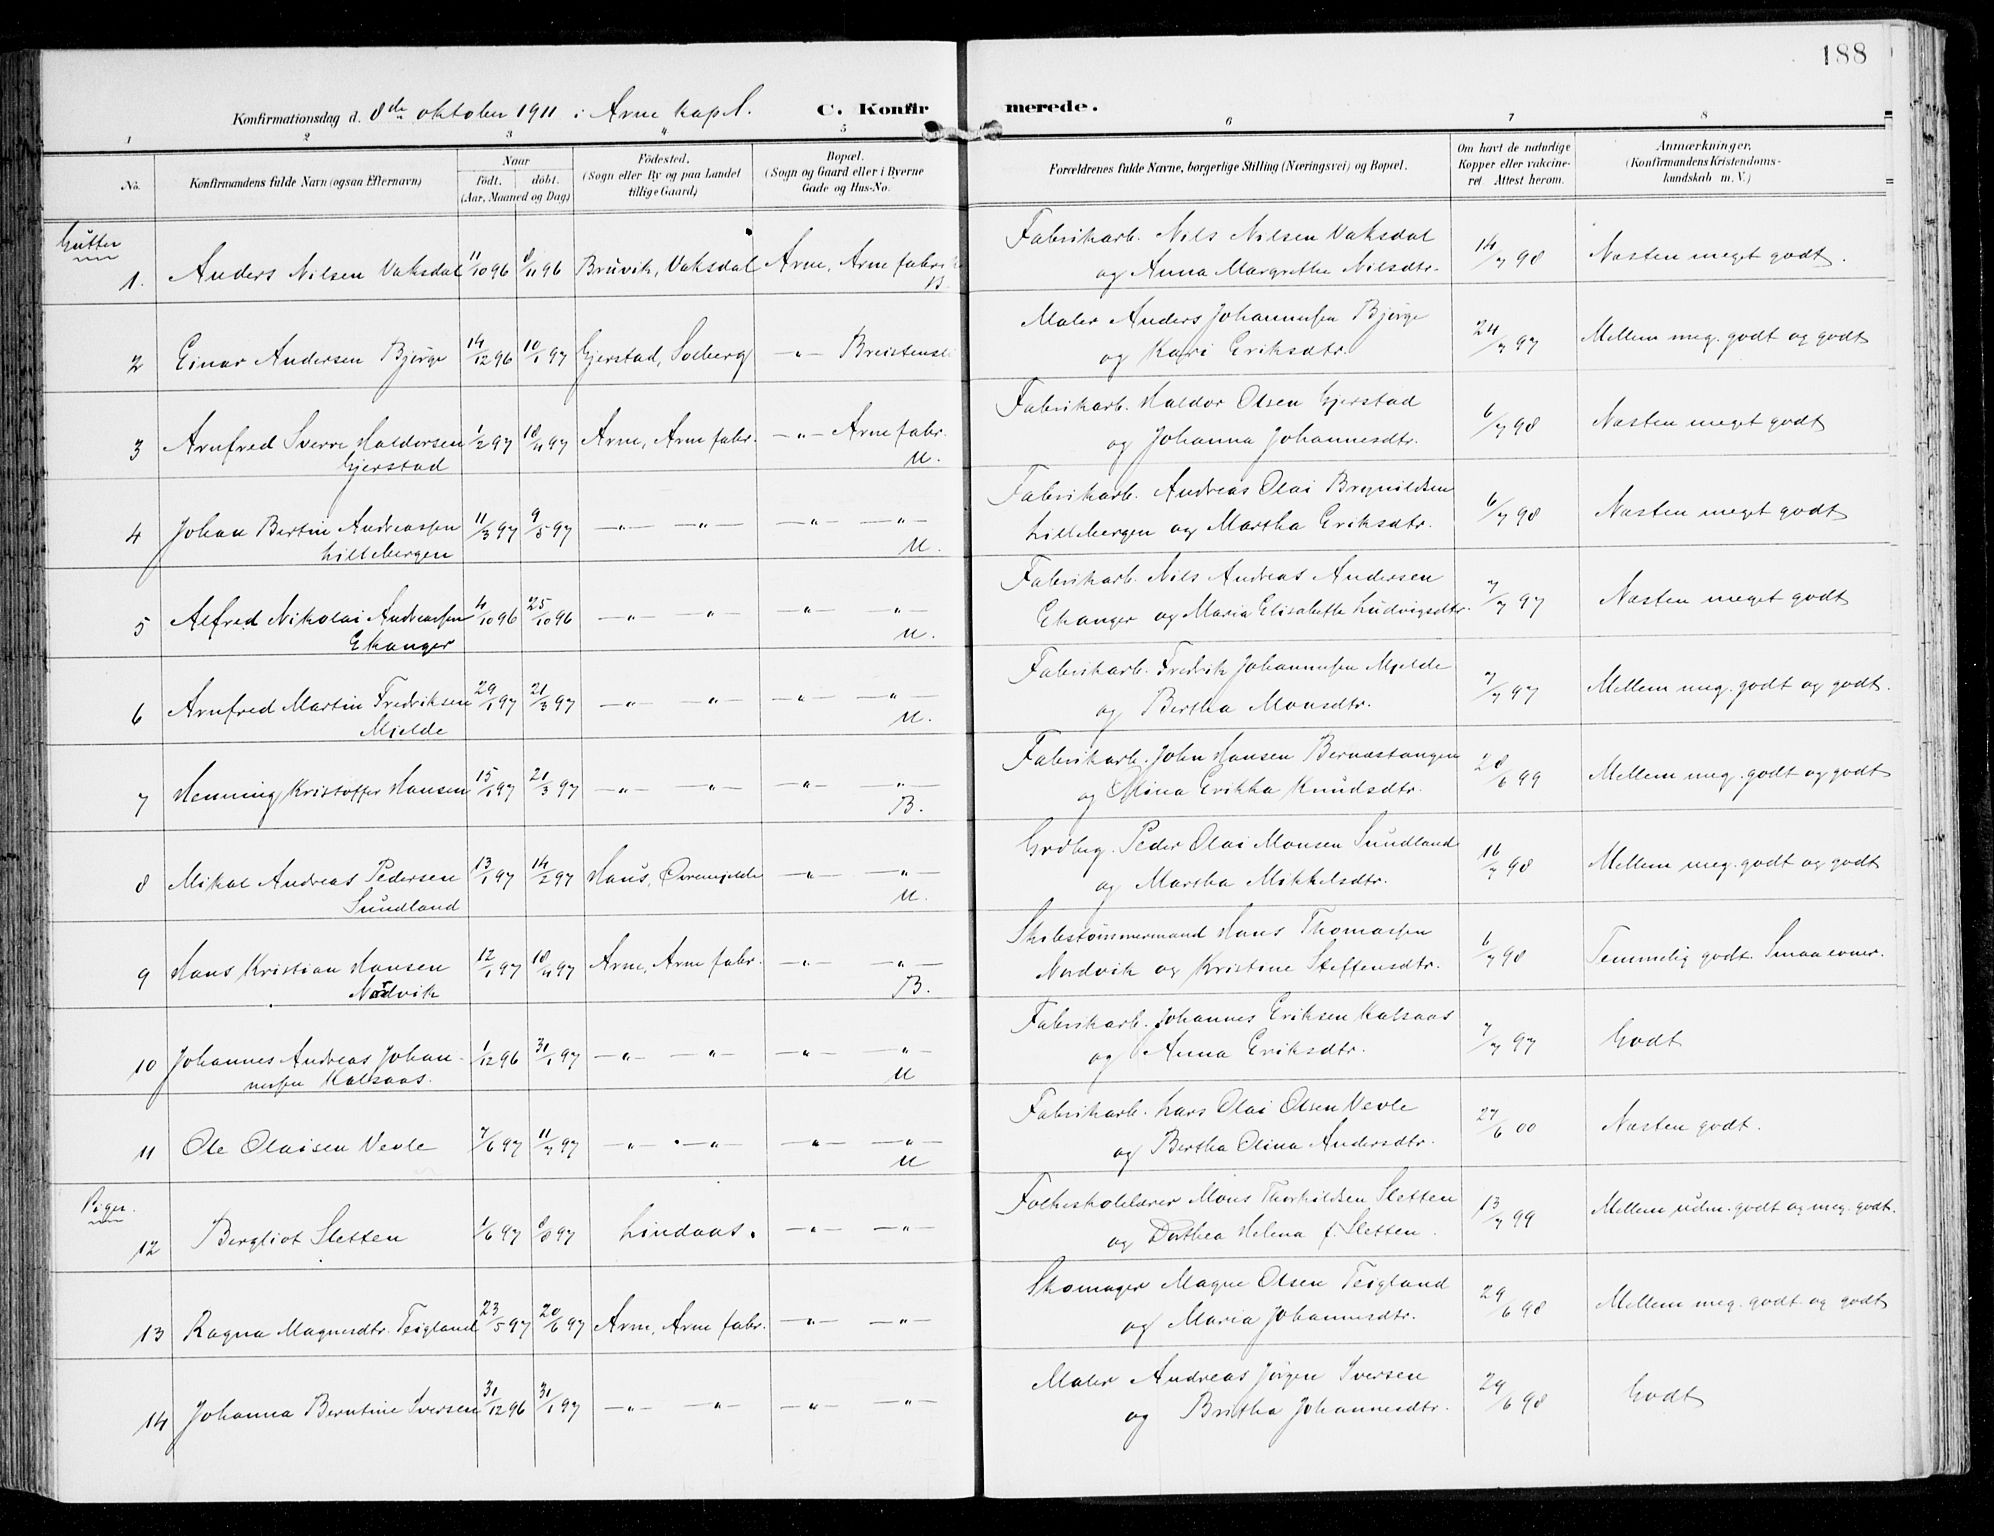 188
Konfirmationsdag d. 8de oktober 1911 i Arne kapel. C. Konfirmerede.
1 2 3 4 5 6 7 8
No. Konfirmandens fulde Navn (ogsaa Efternavn) Naar født. døbt. (Aar, Maaned og Dag) Fødested. (Sogn eller By og paa Landet tillige Gaard) Bopæl. (Sogn og Gaard eller i Byerne Gade og Hus-No. Forældrenes fulde Navne, borgerlige Stilling (Næringsvei) og Bopæl. Om havt de naturlige Kopper eller vakcineret. Attest herom. Anmærkninger. (Konfirmandens Kristendomskundskab m. V.)
Gutter
Fabrikarb. Nils Nilsen Vaksdal
1. Anders Nilsen Vaksdal 11/10 96 8/11 96 Bruvik, Vaksdal Arne, Arne fabri og Anna Margrethe Nilsdtr. 14/7 98 Næsten meget godt.
B.
Maler Anders Johannessen Bjørge
2 Einar Andersen Bjørge 14/12 96 10/1 97 Gjerstad, Solberg -"- Breistensl og Kari Eriksdtr. 24/7 97 Mellem meg. godt og godt
Fabrikarb. Haldor Olsen Gjerstad
3 Arnfred Sverre Haldorsen 1/2 97 18/4 97 Arne, Arne fabr. -"- Arne fabr. og Johanna Johannesdtr. 6/7 98 Næsten meget godt
Gjerstad U.
Fabrikarb. Andreas Olai Brynildsen
4 Johan Bertin Andreassen 11/3 97 9/5 97 -"- -"- -"- -"- Lillebergen og Martha Eriksdtr. 6/7 98 Næsten meget godt
Lillebergen U.
Fabrikarb. Nils Andreas Andersen
5 Alfred Nikolai Andreassen 4/10 96 25/10 96 -"- -"- -"- -"- Ekanger og Maria Elisabethe Ludvigsdtr. 7/7 97 Næsten meget godt
Ekanger U.
Fabrikarb. Fredrik Johannessen Mjelde
6 Arnfred Martin Fredriksen 29/1 97 21/3 97 -"- -"- -"- -"- og Bertha Monsdtr. 7/7 97 Mellem meg. godt og godt.
Mjelde U.
Fabrikarb. John Hansen Bernastangen
7 Henning Kristoffer Hansen 15/1 97 21/3 97 -"- -"- -"- -"- og Olina Erikka Knudsdtr. 28/6 99 Mellem meg. godt og godt
B.
Grdbrg. Peder Olai Monsen Sundland
8 Mikal Andreas Pedersen 13/1 97 14/2 97 Haus, Øvremjelde -"- -"- og Martha Mikkelsdtr. 16/7 98 Mellem meg. godt og godt
Sundland U.
Skibstømmermand Hans Thomassen
9 Hans Kristian Hansen 12/1 97 18/4 97 Arne, Arne fabr. -"- -"- Nordvik og Kristine Steffensdtr. 6/7 98 Temmelig godt. Smaa evner.
Nordvik B.
Fabrikarb. Johannes Eriksen Kalsaas
10 Johannes Andreas Johan- 1/12 96 31/1 97 -"- -"- -"- -"- og Anna Eriksdtr. 7/7 97 Godt
nessen Kalsaas. U
Fabrikarb. Lars Olai Olsen Vevle
11 Ole Olaisen Vevle 7/6 97 11/7 97 -"- -"- -"- -"- og Bertha Olina Andersdtr. 27/6 00 Næsten godt.
U
Piger.
Folkeskolelærer Mons Thorkildsen Sletten
12 Bergliot Sletten 1/6 97 8/8 97 Lindaas. -"- -"- og Dorthea Helena f. Sletten. 13/7 99 Mellem udm. godt og meg. godt.
Skomager Magne Olsen Teigland
13 Ragna Magnesdtr. Teigland 23/5 97 20/6 97 Arne, Arne fabr. -"- -"- og Maria Johannesdtr. 29/6 98 Mellem meg. godt og godt
Maler Andreas Jørgen Iversen
14 Johanna Berntine Iversen 31/12 96 31/1 97 -"- -"- -"- -"- og Britha Johannesdtr. 29/6 98 Godt